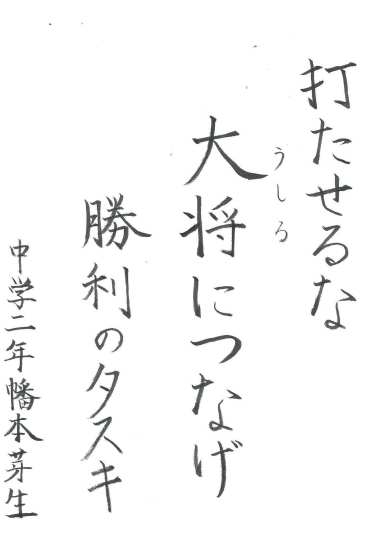 打たせるな
大将につなげ
うしろ
勝利のタスキ
中学二年幡本芽生